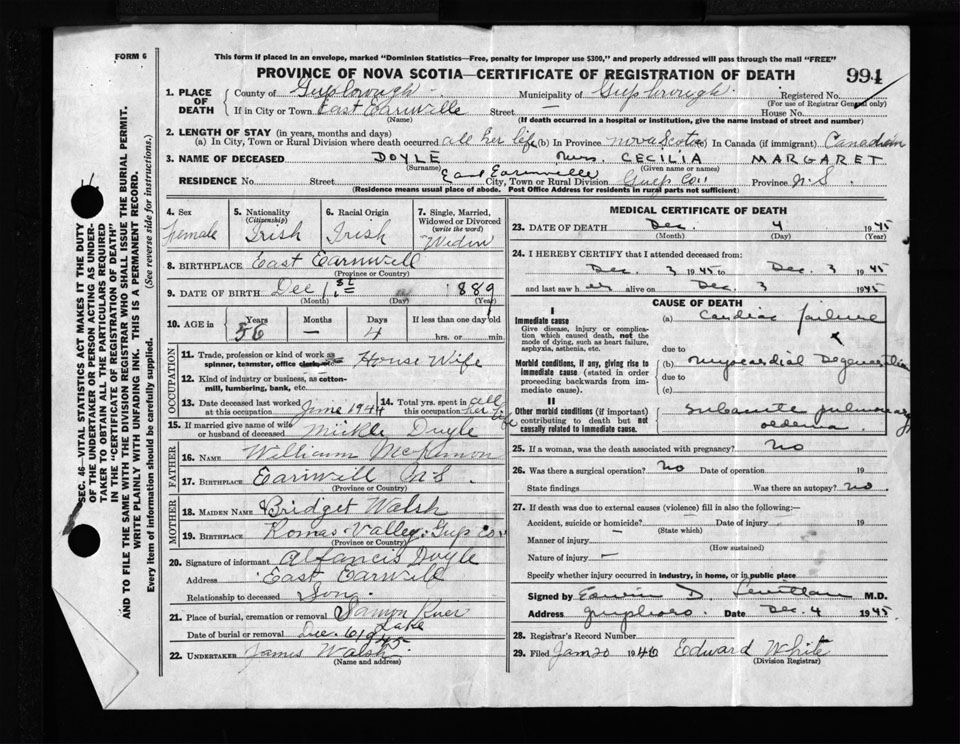 FORM 6
This form if placed in an envelope, marked "Dominion Statistics—Free, penalty for improper use $300," and properly addressed will pass through the mail "FREE"
PROVINCE OF NOVA SCOTIA—CERTIFICATE OF REGISTRATION OF DEATH 991
1. PLACE OF DEATH County of Guysborough Municipality of Guysborough Registered No.
(For use of Registrar General only)
If in City or Town East Earnville Street — House No.
(Name) (If death occurred in a hospital or institution, give the name instead of street and number)
2. LENGTH OF STAY (in years, months and days)
(a) In City, Town or Rural Division where death occurred all her life (b) In Province nova Scotia (c) In Canada (if immigrant) Canadian
3. NAME OF DECEASED DOYLE Mrs. CECILIA MARGARET
(Surname) (Given name or names)
RESIDENCE No. Street East Earnville City, Town or Rural Division Guys Co. Province N.S.
(Residence means usual place of abode. Post Office Address for residents in rural parts not sufficient)
4. Sex female
5. Nationality (Citizenship) Irish
6. Racial Origin Irish
7. Single, Married, Widowed or Divorced (write the word) Widow
8. BIRTHPLACE East Earnvill
(Province or Country)
9. DATE OF BIRTH Dec 1st 1889
(Month) (Day) (Year)
10. AGE in Years 56 Months — Days 4 If less than one day old
hrs. or min.
OCCUPATION
11. Trade, profession or kind of work as spinner, teamster, office clerk, etc. House Wife
12. Kind of industry or business, as cotton-mill, lumbering, bank, etc.
13. Date deceased last worked at this occupation June 1944
14. Total yrs. spent in this occupation all her life
15. If married give name of wife or husband of deceased Mickle Doyle
FATHER
16. NAME William McKinnon
17. BIRTHPLACE Earnvill N S.
(Province or Country)
MOTHER
18. MAIDEN NAME Bridget Walsh
19. BIRTHPLACE Romas Valley Guys Co.
(Province or Country)
20. Signature of informant Alfancis Doyle
Address East Earnvill
Relationship to deceased Son
21. Place of burial, cremation or removal Samon River Lake
Date of burial or removal Dec. 6 1945
22. UNDERTAKER James Walsh
(Name and address)
MEDICAL CERTIFICATE OF DEATH
23. DATE OF DEATH Dec. 4 1945
(Month) (Day) (Year)
24. I HEREBY CERTIFY that I attended deceased from
Dec. 3 1945 to Dec. 3 1945
and last saw her alive on Dec. 3 1945
CAUSE OF DEATH
I
Immediate cause
Give disease, injury or complication which caused death, not the mode of dying, such as heart failure, asphyxia, asthenia, etc.
(a) Cardiac failure
due to
Morbid conditions, if any, giving rise to immediate cause (stated in order proceeding backwards from immediate cause).
(b) myocardial Degeneration
due to
(c)
II
Other morbid conditions (if important) contributing to death but not causally related to immediate cause.
subacute pulmonary oedema
25. If a woman, was the death associated with pregnancy? No
26. Was there a surgical operation? No Date of operation 19
State findings Was there an autopsy? no
27. If death was due to external causes (violence) fill in also the following:—
Accident, suicide or homicide? Date of injury 19
(State which)
Manner of injury
(How sustained)
Nature of injury —
Specify whether injury occurred in industry, in home, or in public place
Signed by Edwin D. M.D.
Address Guysboro. Date Dec. 4 1945
28. Registrar's Record Number
29. Filed Jan 20 1946 Edward White
(Division Registrar)
SEC. 46—VITAL STATISTICS ACT MAKES IT THE DUTY
OF THE UNDERTAKER OR PERSON ACTING AS UNDER-
TAKER TO OBTAIN ALL THE PARTICULARS REQUIRED
IN THE "CERTIFICATE OF REGISTRATION OF DEATH"
AND TO FILE THE SAME WITH THE DIVISION REGISTRAR WHO SHALL ISSUE THE BURIAL PERMIT.
WRITE PLAINLY WITH UNFADING INK. THIS IS A PERMANENT RECORD.
Every item of information should be carefully supplied. (See reverse side for instructions.)